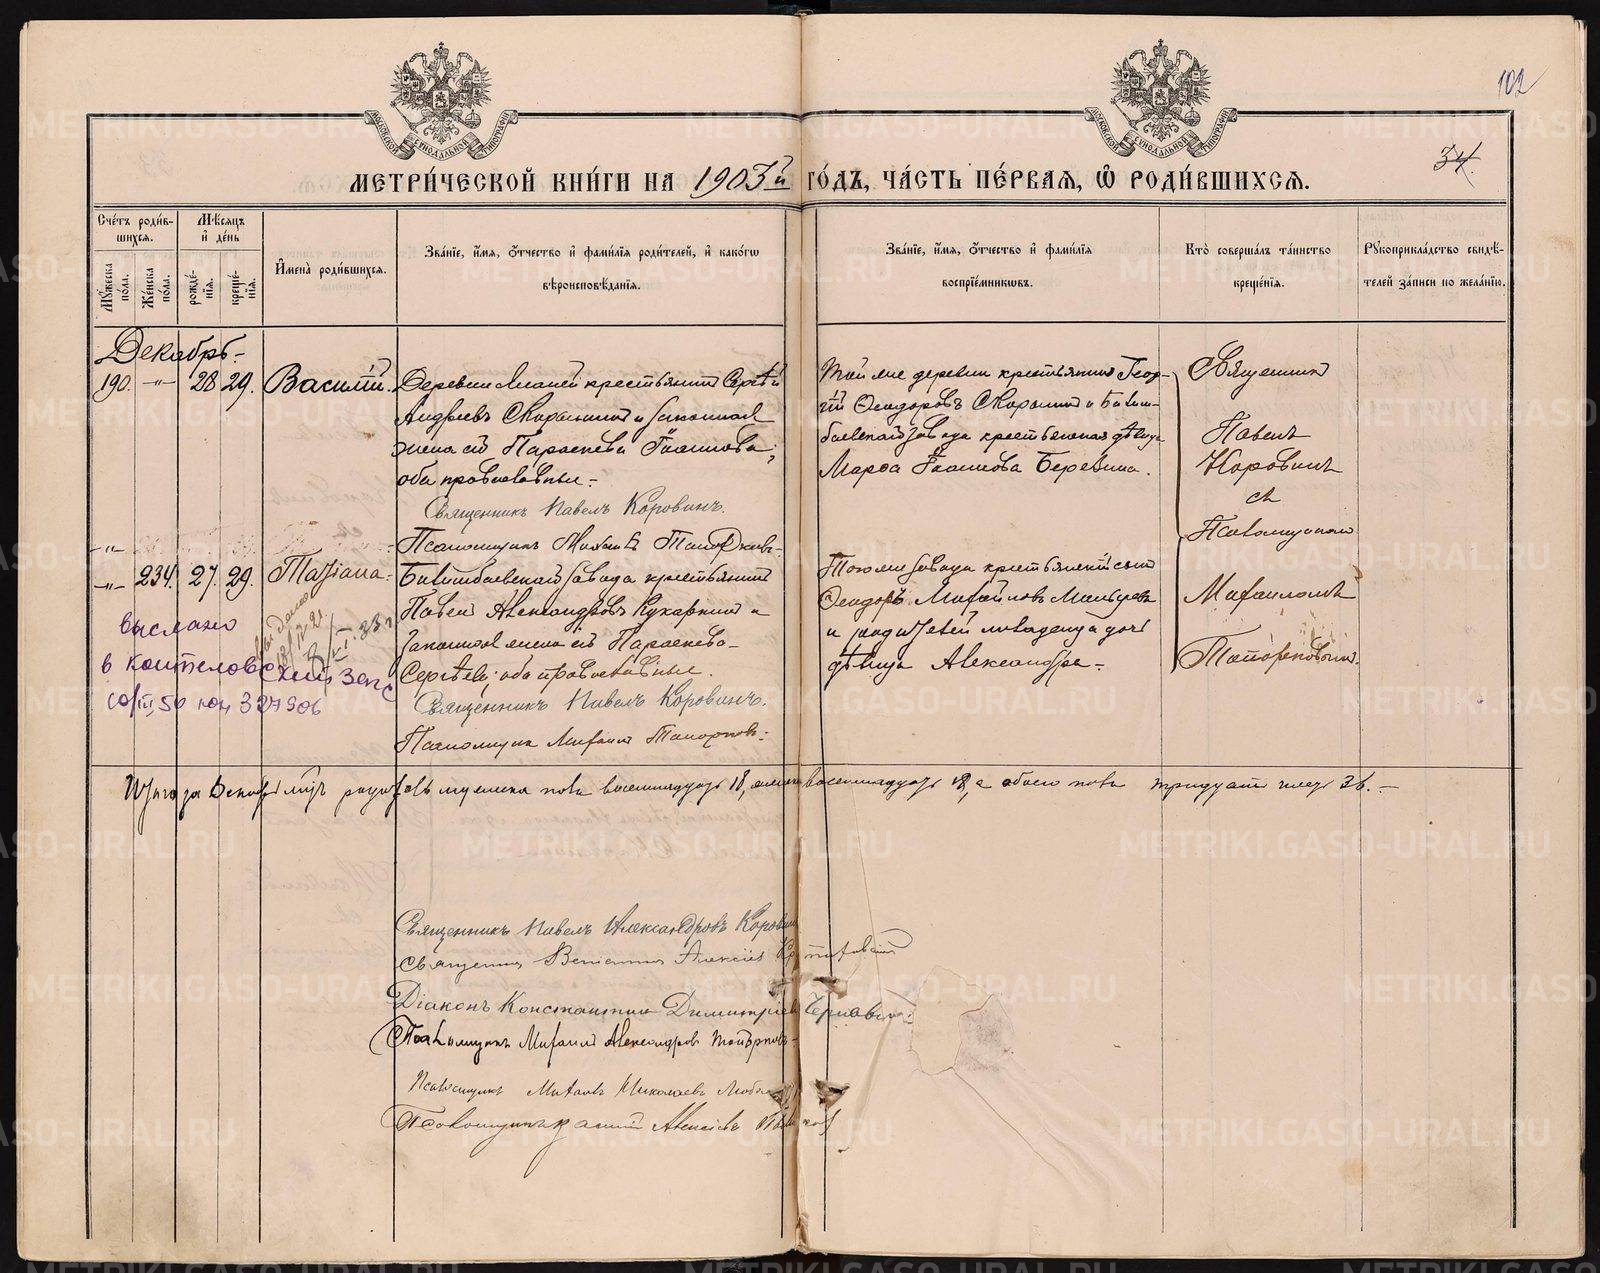 102
34.
МОСКОВСКОЙ СѴНОДАЛЬНОЙ ТИПОГРАФІИ
МОСКОВСКОЙ СѴНОДАЛЬНОЙ ТИПОГРАФІИ
МЕТРИ́ЧЕСКОЙ КНИ́ГИ НА 1903й ГО́ДЪ, ЧА́СТЬ ПЕ́РВАЯ, Ѡ РОДИ́ВШИХСЯ.
Сче́тъ роди́в-
шихся.
Му́жеска по́ла.
Же́нска по́ла.
Мѣ́сяцъ
и де́нь
рожде́-
нія.
креще́-
нія.
Имена̀ роди́вшихся.
Зва́ніе, и́мя, о́тчество и фами́лія роди́телей, и како́гѡ
вѣроисповѣ́данія.
Зва́ніе, и́мя, о́тчество и фами́лія
воспріе́мниковъ.
Кто̀ соверша́лъ та́инство
креще́нія.
Рукоприкла́дство свидѣ́-
телей за́писи по жела́нію.
Декабрь.
190. -"- 28 29. Василій.
крестьянинъ Сергѣй
Андреевъ и законная
жена его Параскева Іоаннова,
оба православные.
Священникъ Павелъ Коровинъ.
Псаломщикъ Михаилъ Топорковъ.
Той же деревни крестьянинъ Геор-
гій Ѳеодоровъ и Билим-
баевскаго завода крестьянская дѣвица
Марѳа Іоаннова Березина.
Священникъ
Павелъ
Коровинъ
съ
Псаломщикомъ
Михаиломъ
Топорковымъ.
-"- 234. 27. 29. Татіана.
Билимбаевскаго завода крестьянинъ
Павелъ Александровъ Кукаркинъ и
законная жена его Параскева
Сергѣева, оба православные.
Священникъ Павелъ Коровинъ.
Псаломщикъ Михаилъ Топорковъ.
Того же завода крестьянскій сынъ
Ѳеодоръ Михайловъ
и родителей младенца дочь
дѣвица Александра.
выслано
в
загс
50 327906
Итого за Декабрь мѣс. родилось мужеска пола восемнадцать 18, женска восемнадцать 18, а обоего пола тридцать шесть 36.
Священникъ Павелъ Александровъ Коровинъ
Священникъ Алексѣевъ
Діаконъ Константинъ Димитріевъ
Псаломщикъ Михаилъ Александровъ Топорковъ
Псаломщикъ Михаилъ Николаевъ
Псаломщикъ Алексѣевъ
METRIKI.GASO-URAL.RU